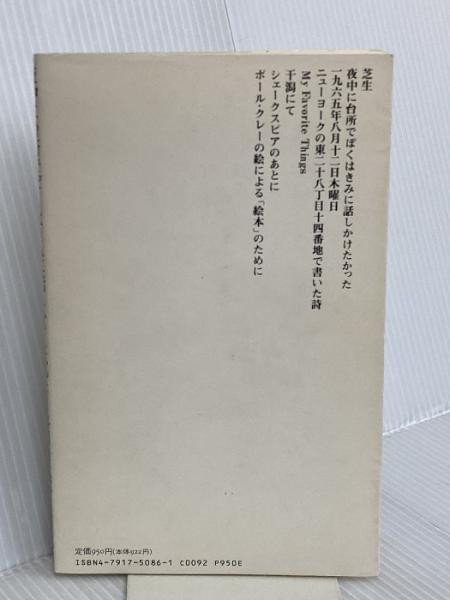 芝生
夜中に台所でぼくはきみに話しかけたかった
一九六五年八月十二日木曜日
ニューヨークの東二十八丁目十四番地で書いた詩
My Favorite Things
干潟にて
シェークスピアのあとに
ポール・クレーの絵による「絵本」のために
定価950円(本体922円)
ISBN4-7917-5086-1 C0092 P950E